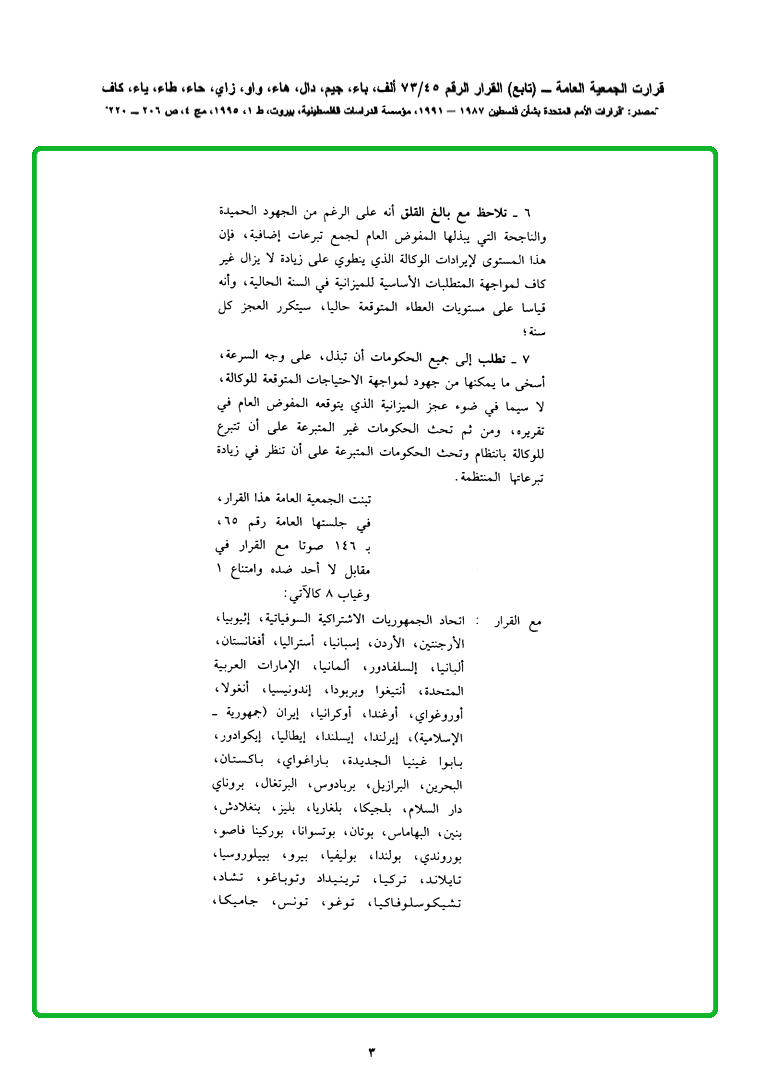 قرارت الجمعية العامة ــ (تابع) القرار الرقم ٧٣/٤٥ ألف، باء، جيم، دال، هاء، واو، زاي، حاء، طاء، ياء، كاف
"مصدر: "قرارات الأمم المتحدة بشأن فلسطين ١٩٨٧ – ١٩٩١، مؤسسة الدراسات الفلسطينية، بيروت، ط ١، ١٩٩٥، مج ٤، ص ٢٠٦ ــ ٢٢٠"
٦ ـ تلاحظ مع بالغ القلق أنه على الرغم من الجهود الحميدة
والناجحة التي يبذلها المفوض العام لجمع تبرعات إضافية، فإن
هذا المستوى لإيرادات الوكالة الذي ينطوي على زيادة لا يزال غير
كاف لمواجهة المتطلبات الأساسية للميزانية في السنة الحالية، وأنه
قياسا على مستويات العطاء المتوقعة حاليا، سيتكرر العجز كل
سنة؛
٧ ـ تطلب إلى جميع الحكومات أن تبذل، على وجه السرعة،
أسخى ما يمكنها من جهود لمواجهة الاحتياجات المتوقعة للوكالة،
لا سيما في ضوء عجز الميزانية الذي يتوقعه المفوض العام في
تقريره، ومن ثم تحث الحكومات غير المتبرعة على أن تتبرع
للوكالة بانتظام وتحث الحكومات المتبرعة على أن تنظر في زيادة
تبرعاتها المنتظمة.
تبنت الجمعية العامة هذا القرار،
في جلستها العامة رقم ٦٥،
بـ ١٤٦ صوتا مع القرار في
مقابل لا أحد ضده وامتناع ١
وغياب ٨ كالآتي:
مع القرار : اتحاد الجمهوريات الاشتراكية السوفياتية، إثيوبيا،
الأرجنتين، الأردن، إسبانيا، أستراليا، أفغانستان،
ألبانيا، إلسلفادور، ألمانيا، الإمارات العربية
المتحدة، أنتيغوا وبربودا، إندونيسيا، أنغولا،
أوروغواي، أوغندا، أوكرانيا، إيران (جمهورية ـ
الإسلامية)، إيرلندا، إيسلندا، إيطاليا، إيكوادور،
بابوا غينيا الجديدة، باراغواي، باكستان،
البحرين، البرازيل، بربادوس، البرتغال، بروناي
دار السلام، بلجيكا، بلغاريا، بليز، بنغلادش،
بنين، البهاماس، بوتان، بوتسوانا، بوركينا فاصو،
بوروندي، بولندا، بوليفيا، بيرو، بييلوروسيا،
تايلاند، تركيا، ترينيداد وتوباغو، تشاد،
تشيكوسلوفاكيا، توغو، تونس، جاميكا،
٣